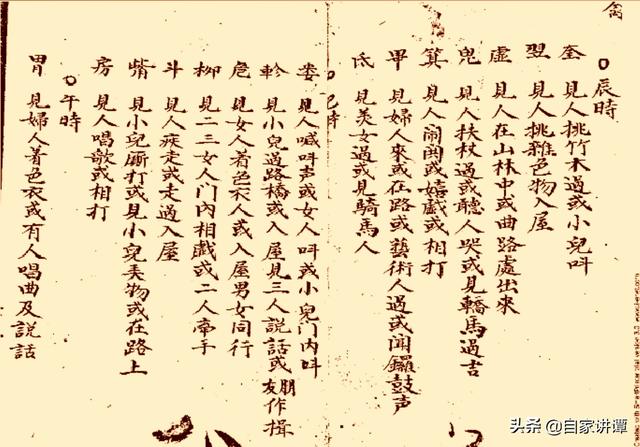 禽
○辰時
奎 見人挑竹木過或小兒呌
翌 見人挑雜色物入屋
虛 見人在山林中或曲路處出來
鬼 見人扶杖過或聽人哭或見轎馬過吉
箕 見人閙閧或嬉戲或相打
甲 見婦人來或在路或藝術人過或聞鑼鼓声
氐 見美女過或見騎馬人
○巳時
娄 見人喊呌声或女人呌或小兒門內呌
軫 見小兒過路橋或入屋見三人說話或朋友作揖
危 見女人着色衣人或入屋男女同行
柳 見二三女人門內相戲或二人牽手
斗 見人疾走或走過入屋
觜 見小兒厮打或見小兒美物或在路上
房 見人唱歌或相打
○午時
胃 見婦人着色衣或有人唱曲及説話
头条 @自家讲谭